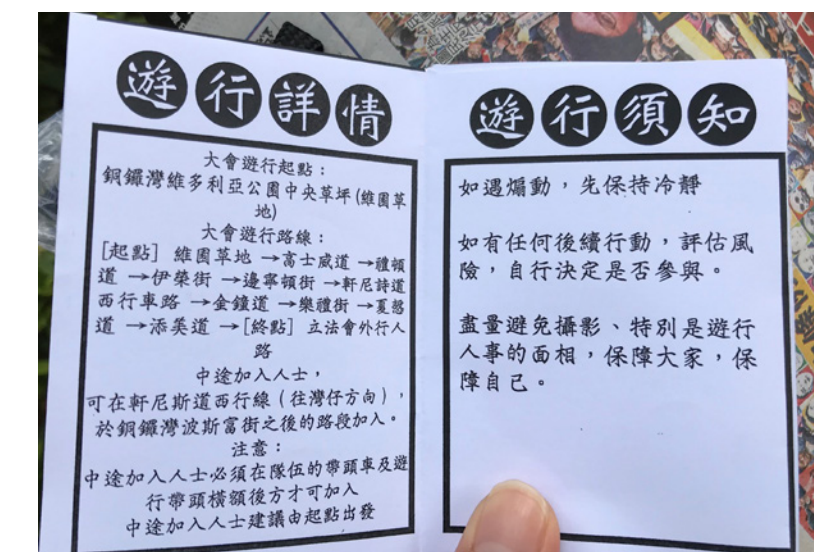 遊行詳情
大會遊行起點：
銅鑼灣維多利亞公園中央草坪(維園草
地)
大會遊行路線：
[起點] 維園草地 →高士威道 →禮頓
道 →伊榮街 →邊寧頓街 →軒尼詩道
西行車路 →金鐘道 →樂禮街 →夏愨
道 →添美道 →[終點] 立法會外行人
路
中途加入人士，
可在軒尼斯道西行線（往灣仔方向），
於銅鑼灣波斯富街之後的路段加入。
注意：
中途加入人士必須在隊伍的帶頭車及遊
行帶頭橫額後方才可加入
中途加入人士建議由起點出發
遊行須知
如遇煽動，先保持冷靜
如有任何後續行動，評估風
險，自行決定是否參與。
盡量避免攝影、特別是遊行
人事的面相，保障大家，保
障自己。